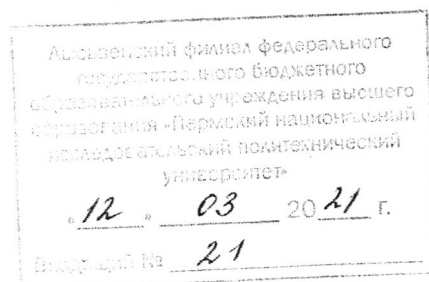 Лысьвенский филиал федерального
государственного бюджетного
образовательного учреждения высшего
образования «Пермский национальный
исследовательский политехнический
университет»
« 12 » 03 20 21 г.
Входящий № 21